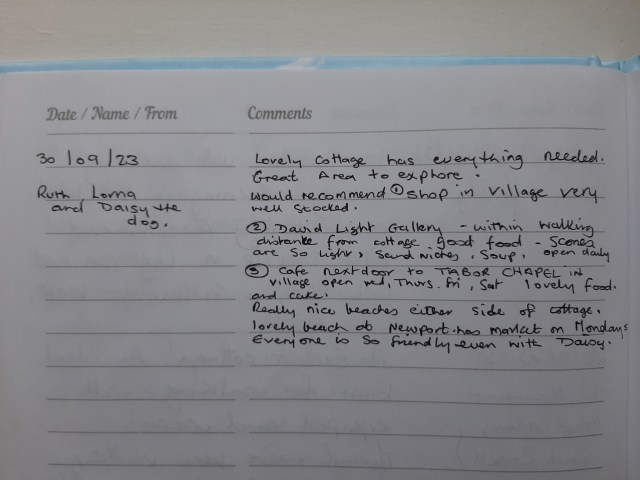 Date / Name / From
Comments
30/09/23
Ruth Lorna
and Daisy the
dog.
Lovely Cottage has everything needed.
Great Area to exphore.
Would recommend ① Shop in Village very
well stocked.
② David Light Gallery - within walking
distanke from cottage good food - Scones
are so light, Sandwiches, Soup, open daily
③ Cafe next door to TABOR CHAPEL in
village open wed, Thurs. Fri, Sat lovely food.
and cake.
Really nice beaches either side of cottage.
lovely beach at Newport. has market on Mondays
Everyone is so friendly even with Daisy.